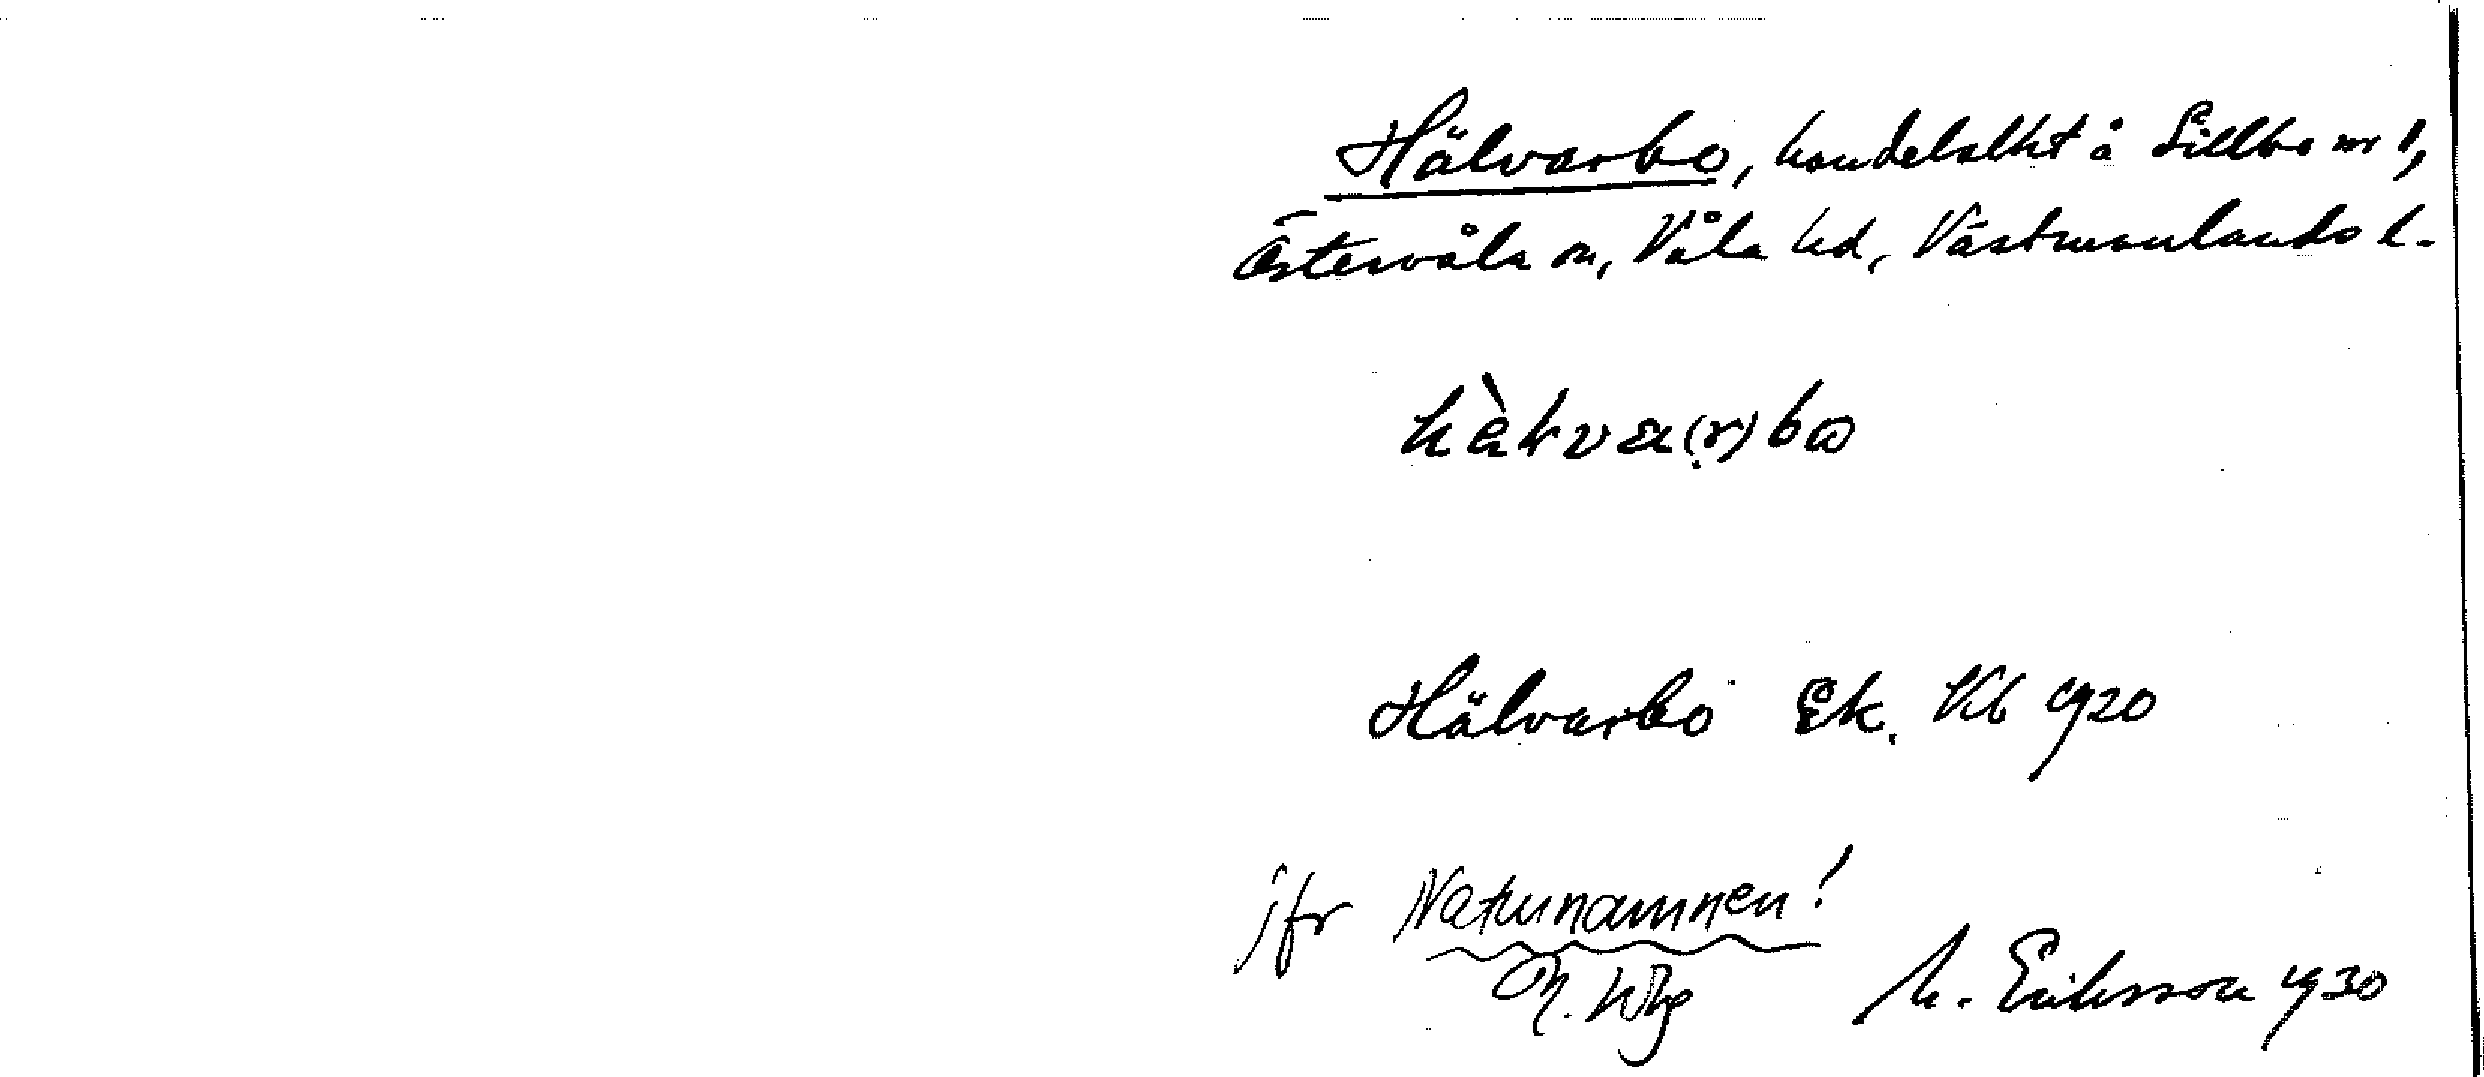 Hälvarbo, handelslht å Sillbo nr 1,
Östervåla sn, Våla hd, Västmanlands l.
hàlva(r)bo
Hälvarbo Ek. Kb 1920
jfr Naturnamnen!
M. Eriksson 1930